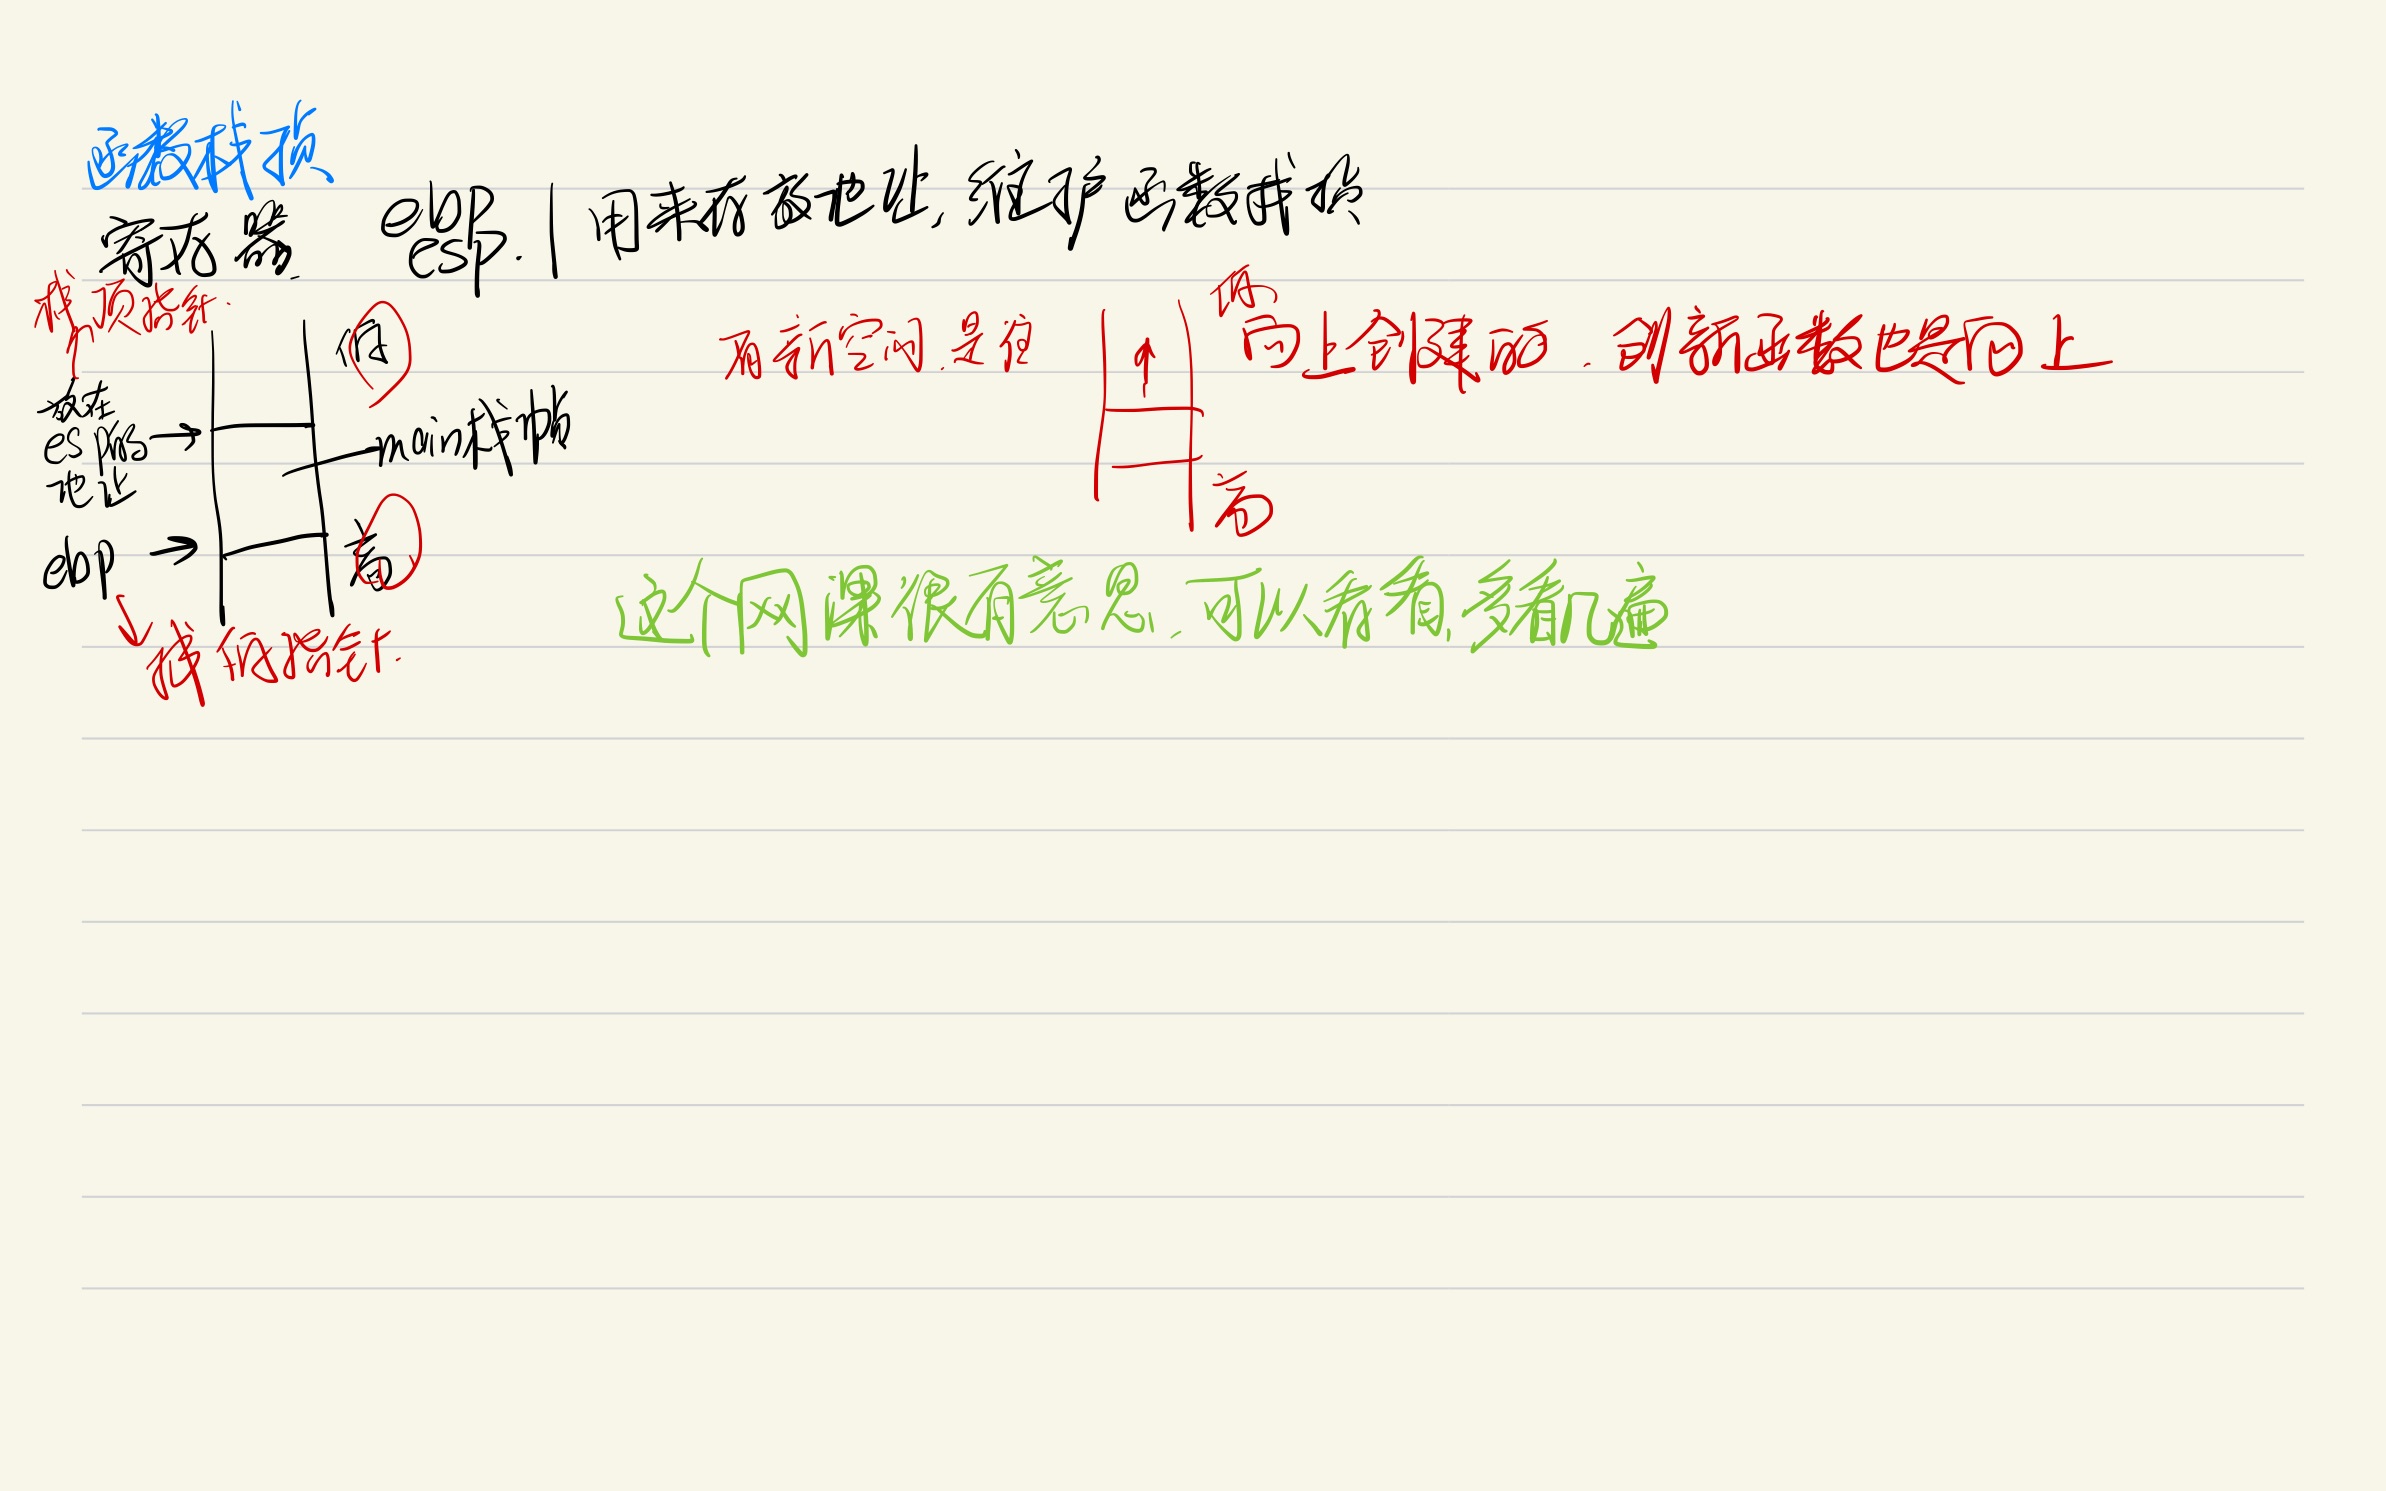 函数栈损
寄存器 ebp
esp. 用来存放地址, 维护函数栈损
栈顶指针.
低
放在
esp的
地址
main栈帧
ebp
高
栈低指针.
有新空间.是往
低
向上创建的. 创新函数也是向上
高
这个网课很有意思.可以看看,多看几遍